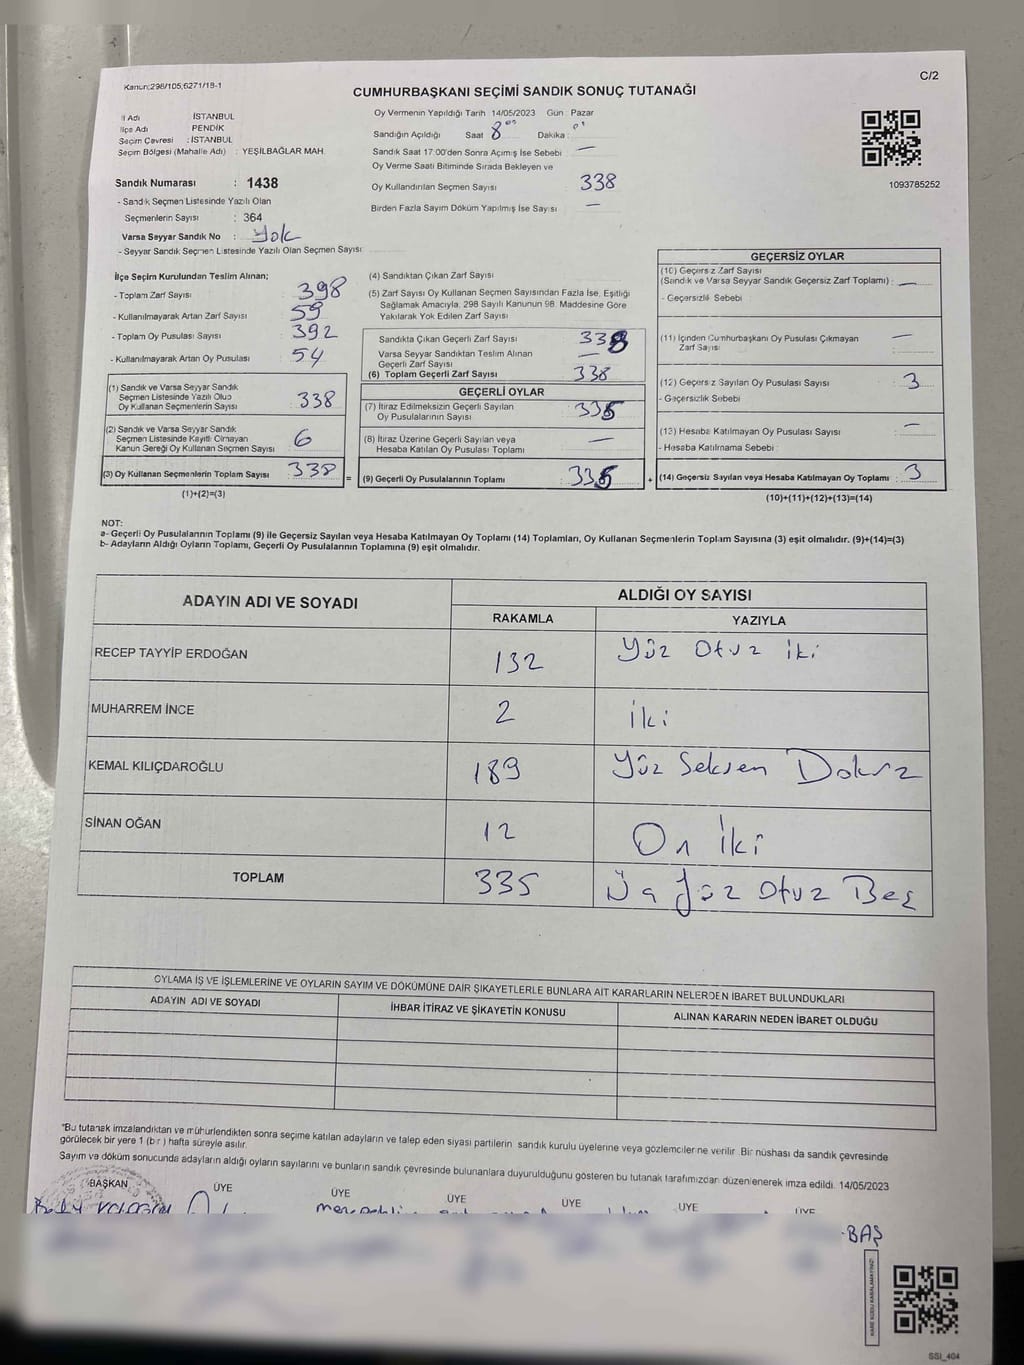 Kanun:298/105,6271/18-1
C/2
CUMHURBAŞKANI SEÇİMİ SANDIK SONUÇ TUTANAĞI
İl Adı İSTANBUL
İlçe Adı PENDİK
Seçim Çevresi : İSTANBUL
Seçim Bölgesi (Mahalle Adı) : YEŞİLBAĞLAR MAH.
Sandık Numarası : 1438
- Sandık Seçmen Listesinde Yazılı Olan
Seçmenlerin Sayısı : 364
Varsa Seyyar Sandık No : Yok
- Seyyar Sandık Seçmen Listesinde Yazılı Olan Seçmen Sayısı
Oy Vermenin Yapıldığı Tarih 14/05/2023 Gün : Pazar
Sandığın Açıldığı Saat 8 Dakika :
Sandık Saat 17:00'den Sonra Açılmış İse Sebebi —
Oy Verme Saati Bitiminde Sırada Bekleyen ve
Oy Kullandırılan Seçmen Sayısı 338
Birden Fazla Sayım Döküm Yapılmış İse Sayısı —
1093785252
İlçe Seçim Kurulundan Teslim Alınan;
- Toplam Zarf Sayısı : 398
- Kullanılmayarak Artan Zarf Sayısı : 59
- Toplam Oy Pusulası Sayısı : 392
- Kullanılmayarak Artan Oy Pusulası : 54
(1) Sandık ve Varsa Seyyar Sandık
Seçmen Listesinde Yazılı Olup
Oy Kullanan Seçmenlerin Sayısı : 338
(2) Sandık ve Varsa Seyyar Sandık
Seçmen Listesinde Kayıtlı Olmayan
Kanun Gereği Oy Kullanan Seçmen Sayısı : 6
(3) Oy Kullanan Seçmenlerin Toplam Sayısı : 338
(1)+(2)=(3)
(4) Sandıktan Çıkan Zarf Sayısı
(5) Zarf Sayısı Oy Kullanan Seçmen Sayısından Fazla İse, Eşitliği
Sağlamak Amacıyla, 298 Sayılı Kanunun 98. Maddesine Göre
Yakılarak Yok Edilen Zarf Sayısı
Sandıkta Çıkan Geçerli Zarf Sayısı : 338
Varsa Seyyar Sandıktan Teslim Alınan
Geçerli Zarf Sayısı : —
(6) Toplam Geçerli Zarf Sayısı : 338
GEÇERLİ OYLAR
(7) İtiraz Edilmeksizin Geçerli Sayılan
Oy Pusulalarının Sayısı : 335
(8) İtiraz Üzerine Geçerli Sayılan veya
Hesaba Katılan Oy Pusulası Toplamı : —
= (9) Geçerli Oy Pusulalarının Toplamı : 335 +
GEÇERSİZ OYLAR
(10) Geçersiz Zarf Sayısı
(Sandık ve Varsa Seyyar Sandık Geçersiz Zarf Toplamı) : —
- Geçersizlik Sebebi :
(11) İçinden Cumhurbaşkanı Oy Pusulası Çıkmayan
Zarf Sayısı : —
(12) Geçersiz Sayılan Oy Pusulası Sayısı : 3
- Geçersizlik Sebebi
(13) Hesaba Katılmayan Oy Pusulası Sayısı : —
- Hesaba Katılmama Sebebi
(14) Geçersiz Sayılan veya Hesaba Katılmayan Oy Toplamı : 3
(10)+(11)+(12)+(13)=(14)
NOT:
a- Geçerli Oy Pusulalarının Toplamı (9) ile Geçersiz Sayılan veya Hesaba Katılmayan Oy Toplamı (14) Toplamları, Oy Kullanan Seçmenlerin Toplam Sayısına (3) eşit olmalıdır. (9)+(14)=(3)
b- Adayların Aldığı Oyların Toplamı, Geçerli Oy Pusulalarının Toplamına (9) eşit olmalıdır.
ADAYIN ADI VE SOYADI
ALDIĞI OY SAYISI
RAKAMLA YAZIYLA
RECEP TAYYİP ERDOĞAN 132 Yüz Otuz iki
MUHARREM İNCE 2 iki
KEMAL KILIÇDAROĞLU 189 Yüz Seksen Dokuz
SİNAN OĞAN 12 On İki
TOPLAM 335 Üç Yüz Otuz Beş
OYLAMA İŞ VE İŞLEMLERİNE VE OYLARIN SAYIM VE DÖKÜMÜNE DAİR ŞİKAYETLERLE BUNLARA AİT KARARLARIN NELERDEN İBARET BULUNDUKLARI
ADAYIN ADI VE SOYADI İHBAR İTİRAZ VE ŞİKAYETİN KONUSU ALINAN KARARIN NEDEN İBARET OLDUĞU
*Bu tutanak imzalandıktan ve mühürlendikten sonra seçime katılan adayların ve talep eden siyasi partilerin sandık kurulu üyelerine veya gözlemcilerine verilir. Bir nüshası da sandık çevresinde
görülecek bir yere 1 (bir) hafta süreyle asılır.
Sayım ve döküm sonucunda adayların aldığı oyların sayılarını ve bunların sandık çevresinde bulunanlara duyurulduğunu gösteren bu tutanak tarafımızdan düzenlenerek imza edildi. 14/05/2023
BAŞKAN ÜYE ÜYE ÜYE ÜYE ÜYE ÜYE
BAŞ
KARE KODU KARALAMAYINIZ!
SSI_404